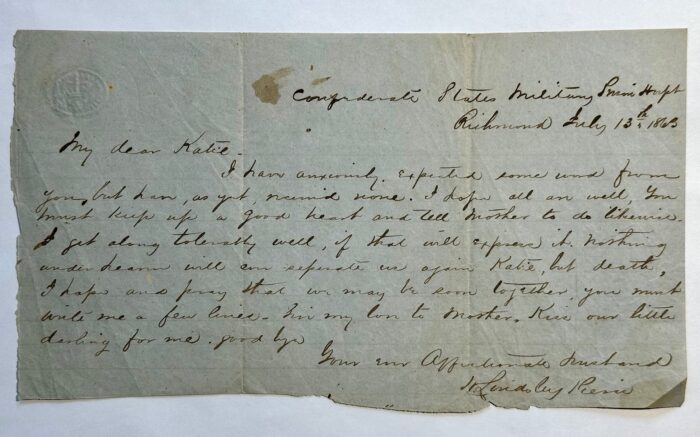 Confederate States Military Prison Hospt
Richmond July 13th 1863
My dear Katie-
I have anxiously expected some word from
you, but have, as yet, received none. I hope all are well, You
must keep up a good heart and tell Mother to do likewise.
I get along tolerably well, if that will express it. Nothing
under heaven will ever seperate us again Katie, but death,
I hope and pray that we may be soon together, you must
write me a few lines. Give my love to Mother. Kiss our little
darling for me. good bye
Your ever Affectionate Husband
Lindsley